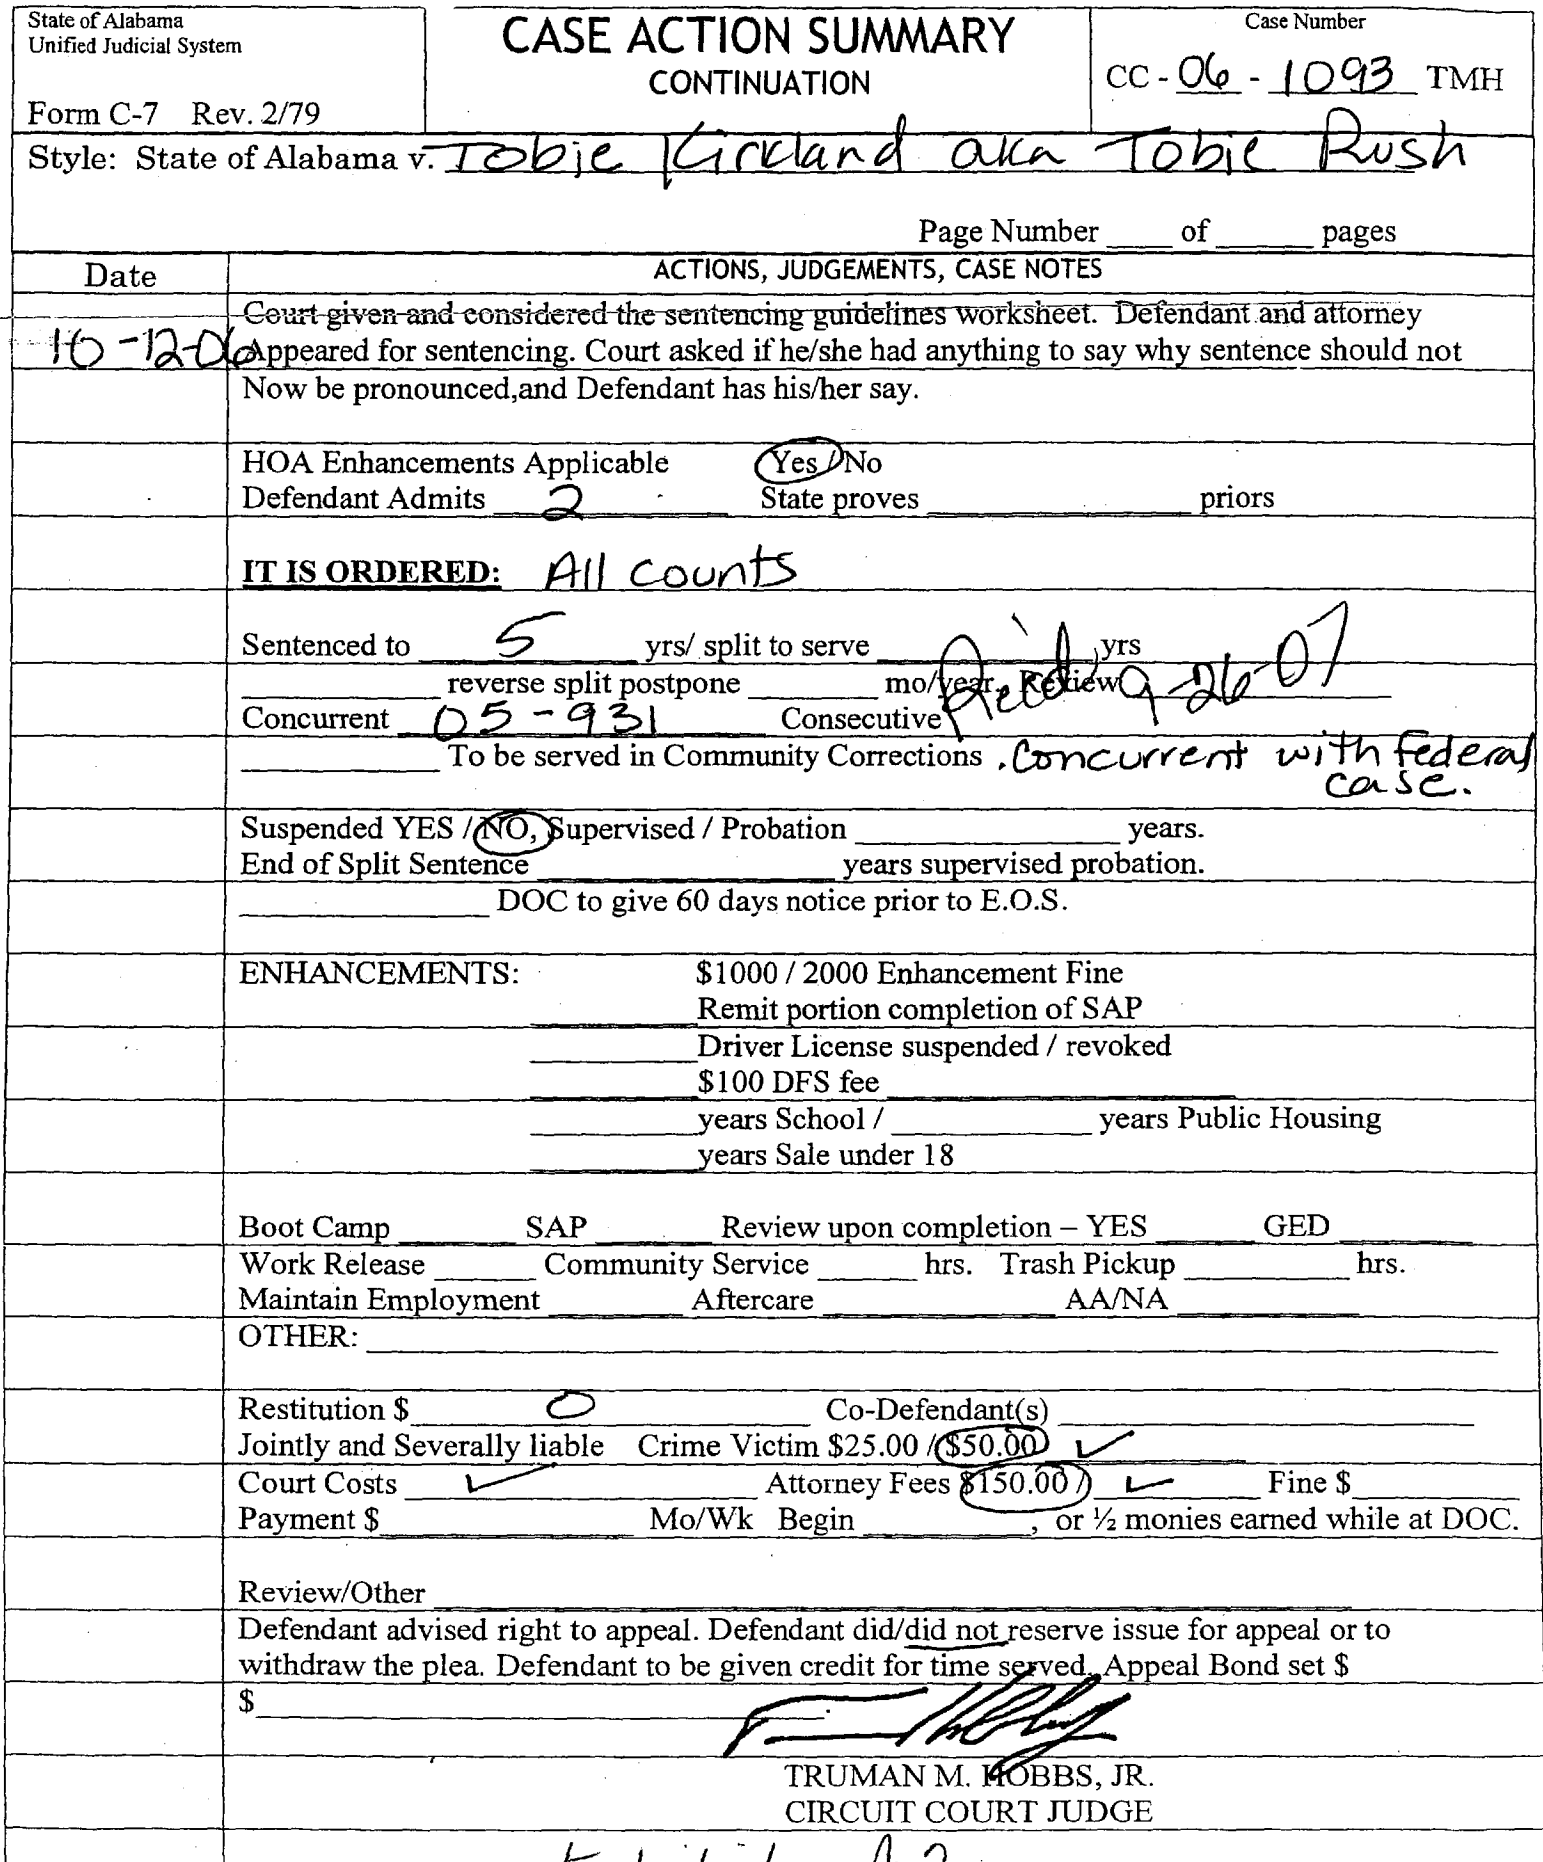 State of Alabama
Unified Judicial System
Form C-7 Rev. 2/79
CASE ACTION SUMMARY
CONTINUATION
Case Number
CC - 06 - 1093 TMH
Style: State of Alabama v. Tobie Kirkland aka Tobie Rush
Page Number ____ of ____ pages
Date
ACTIONS, JUDGEMENTS, CASE NOTES
Court given and considered the sentencing guidelines worksheet. Defendant and attorney
10-12-06 Appeared for sentencing. Court asked if he/she had anything to say why sentence should not
Now be pronounced,and Defendant has his/her say.
HOA Enhancements Applicable Yes / No
Defendant Admits 2 State proves ____ priors
IT IS ORDERED: All counts
Sentenced to 5 yrs/ split to serve ____ yrs
____ reverse split postpone ____ mo/year. Review 9-26-07
Concurrent 05-931 Consecutive
____ To be served in Community Corrections . Concurrent with federal
case.
Suspended YES / NO, Supervised / Probation ____ years.
End of Split Sentence ____ years supervised probation.
____ DOC to give 60 days notice prior to E.O.S.
ENHANCEMENTS: $1000 / 2000 Enhancement Fine
____ Remit portion completion of SAP
____ Driver License suspended / revoked
____ $100 DFS fee ____
____ years School / ____ years Public Housing
____ years Sale under 18
Boot Camp ____ SAP ____ Review upon completion – YES ____ GED ____
Work Release ____ Community Service ____ hrs. Trash Pickup ____ hrs.
Maintain Employment ____ Aftercare ____ AA/NA ____
OTHER: ____
Restitution $ 0 Co-Defendant(s) ____
Jointly and Severally liable Crime Victim $25.00 / $50.00 ✓
Court Costs ✓ Attorney Fees $150.00 / ✓ Fine $ ____
Payment $ ____ Mo/Wk Begin ____, or ½ monies earned while at DOC.
Review/Other ____
Defendant advised right to appeal. Defendant did/did not reserve issue for appeal or to
withdraw the plea. Defendant to be given credit for time served. Appeal Bond set $
$ ____.
TRUMAN M. HOBBS, JR.
CIRCUIT COURT JUDGE